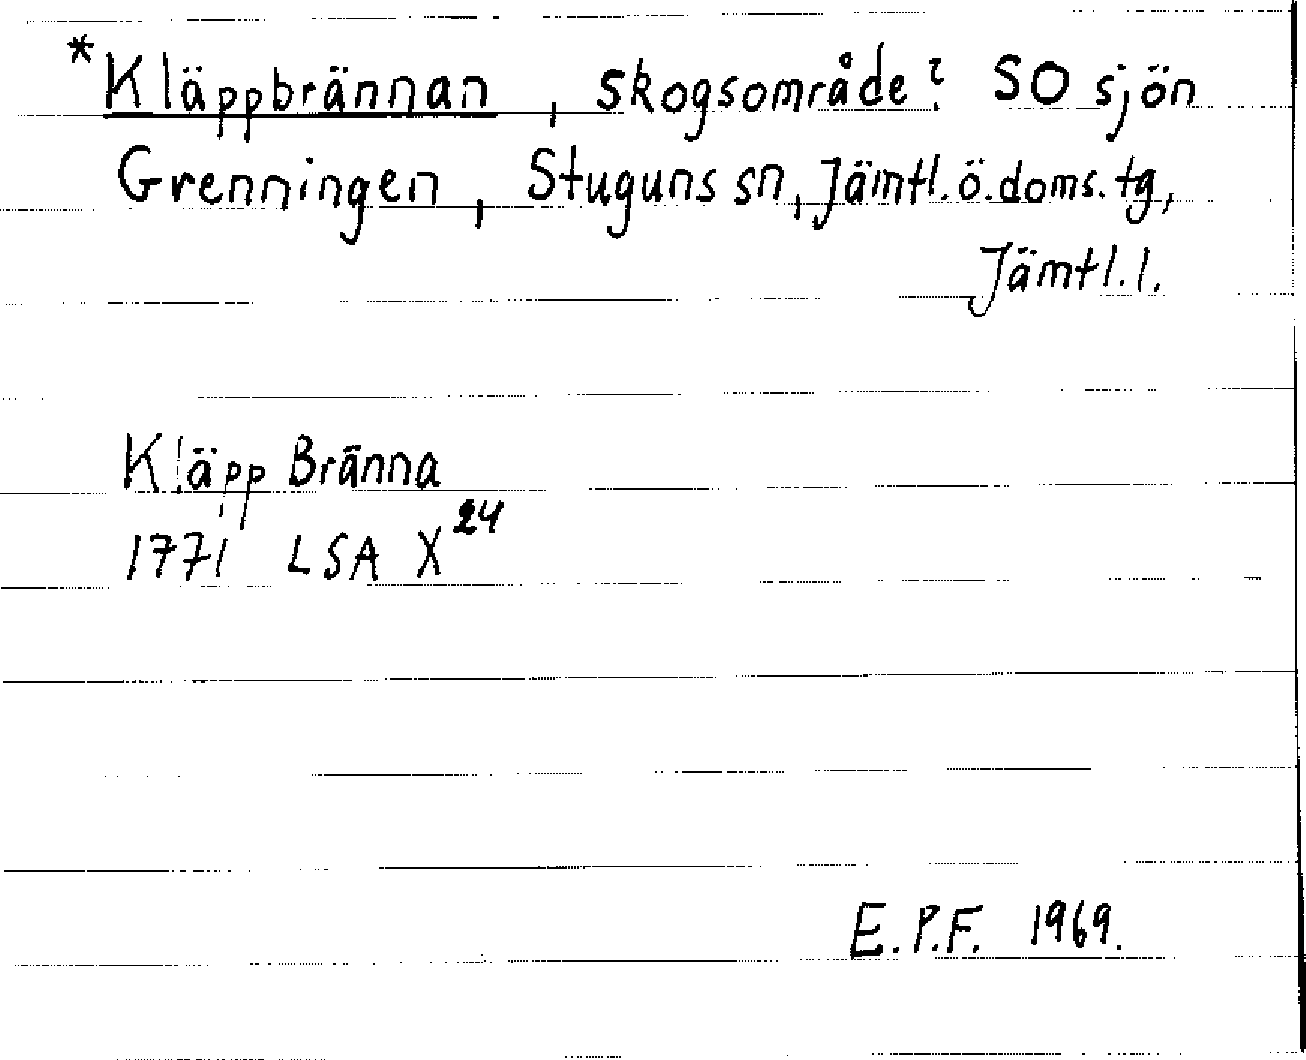 *Kläppbrännan, skogsområde? SO sjön
Grenningen, Stuguns sn, Jämtl.ö.doms.tg,
Jämtl.l.
Kläpp Bränna
1771 LSA X24
E.P.F. 1969.